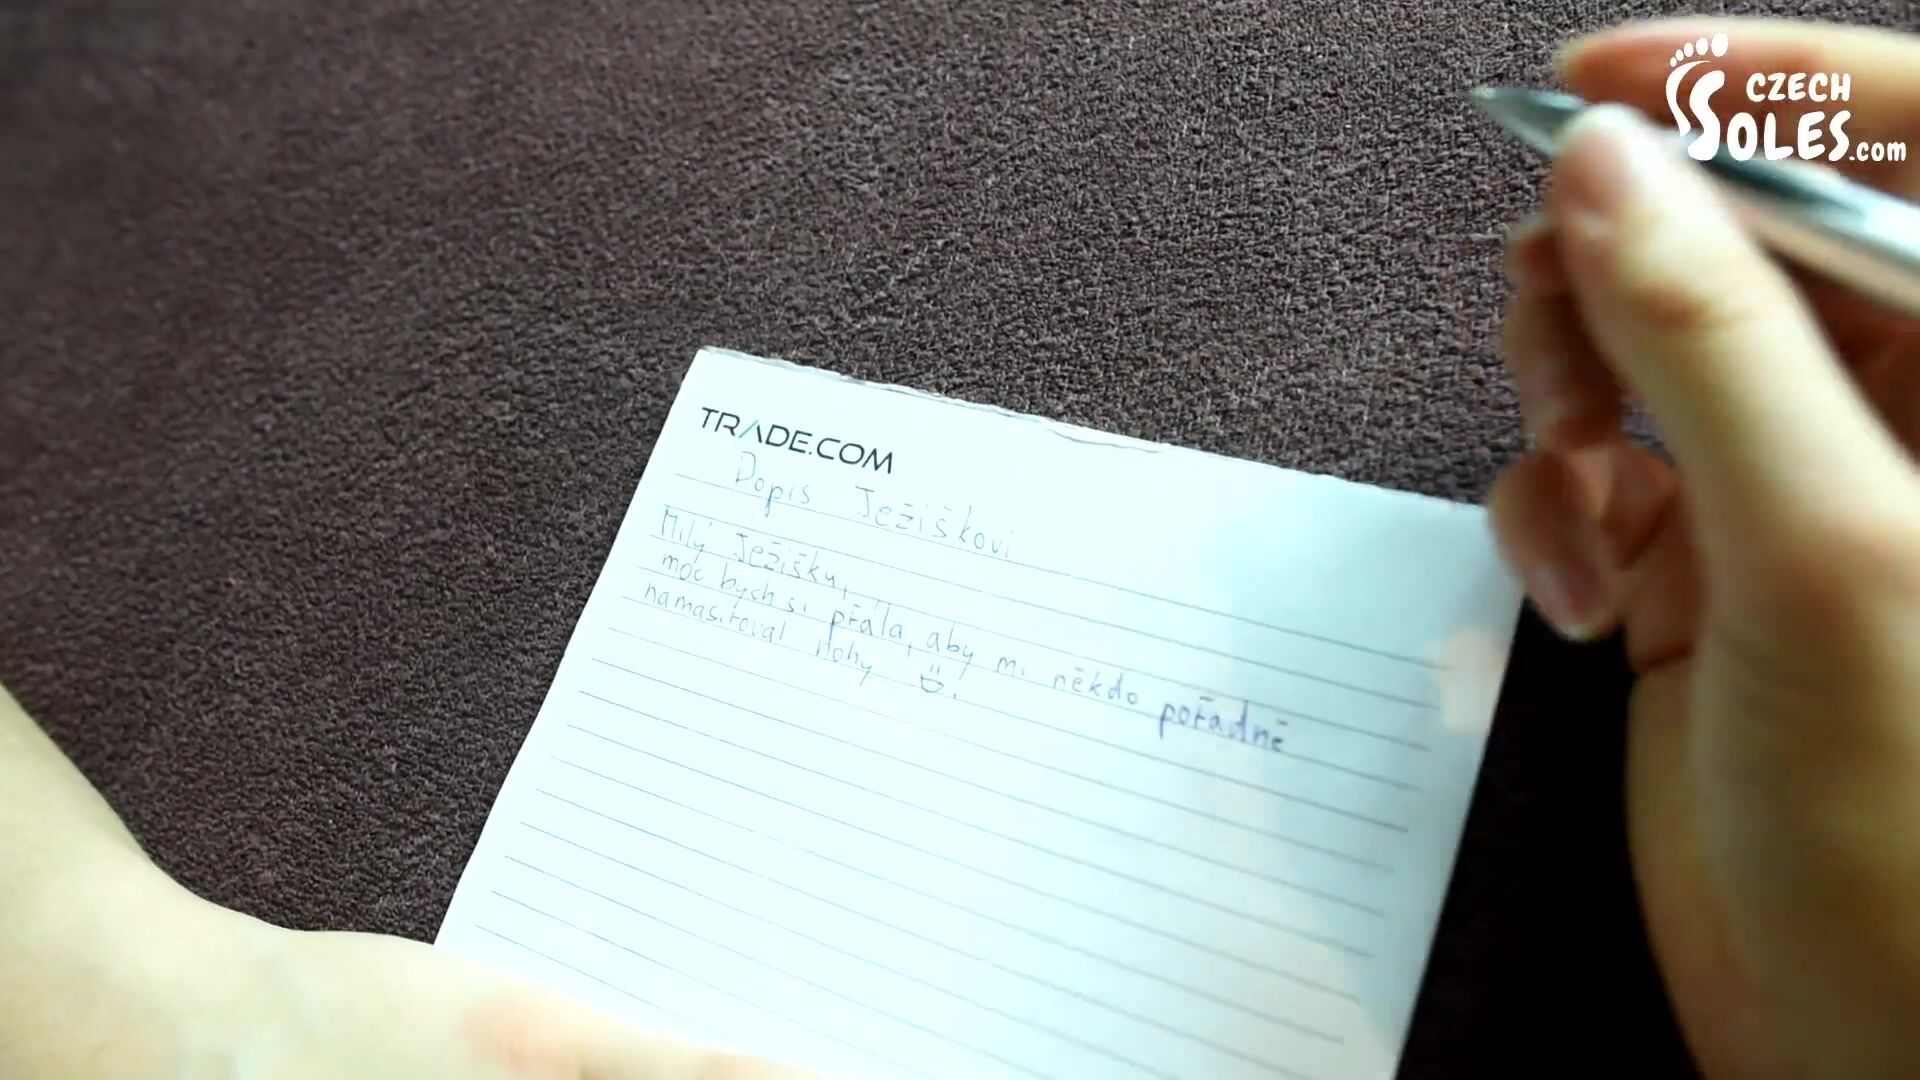 CZECH
SOLES.com
TRADE.COM
Dopis Ježiškovi
Milý Ježišku,
moc bych si přála, aby mi někdo pořádně
namasíroval nohy